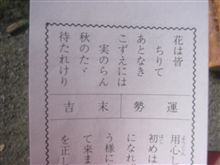 花は皆
ちりて
あとなき
こずえには
実のらん
秋のたゞ
待たれけり
運勢
末吉
用心
初めは
になれ
う様に
て来ま
を正し